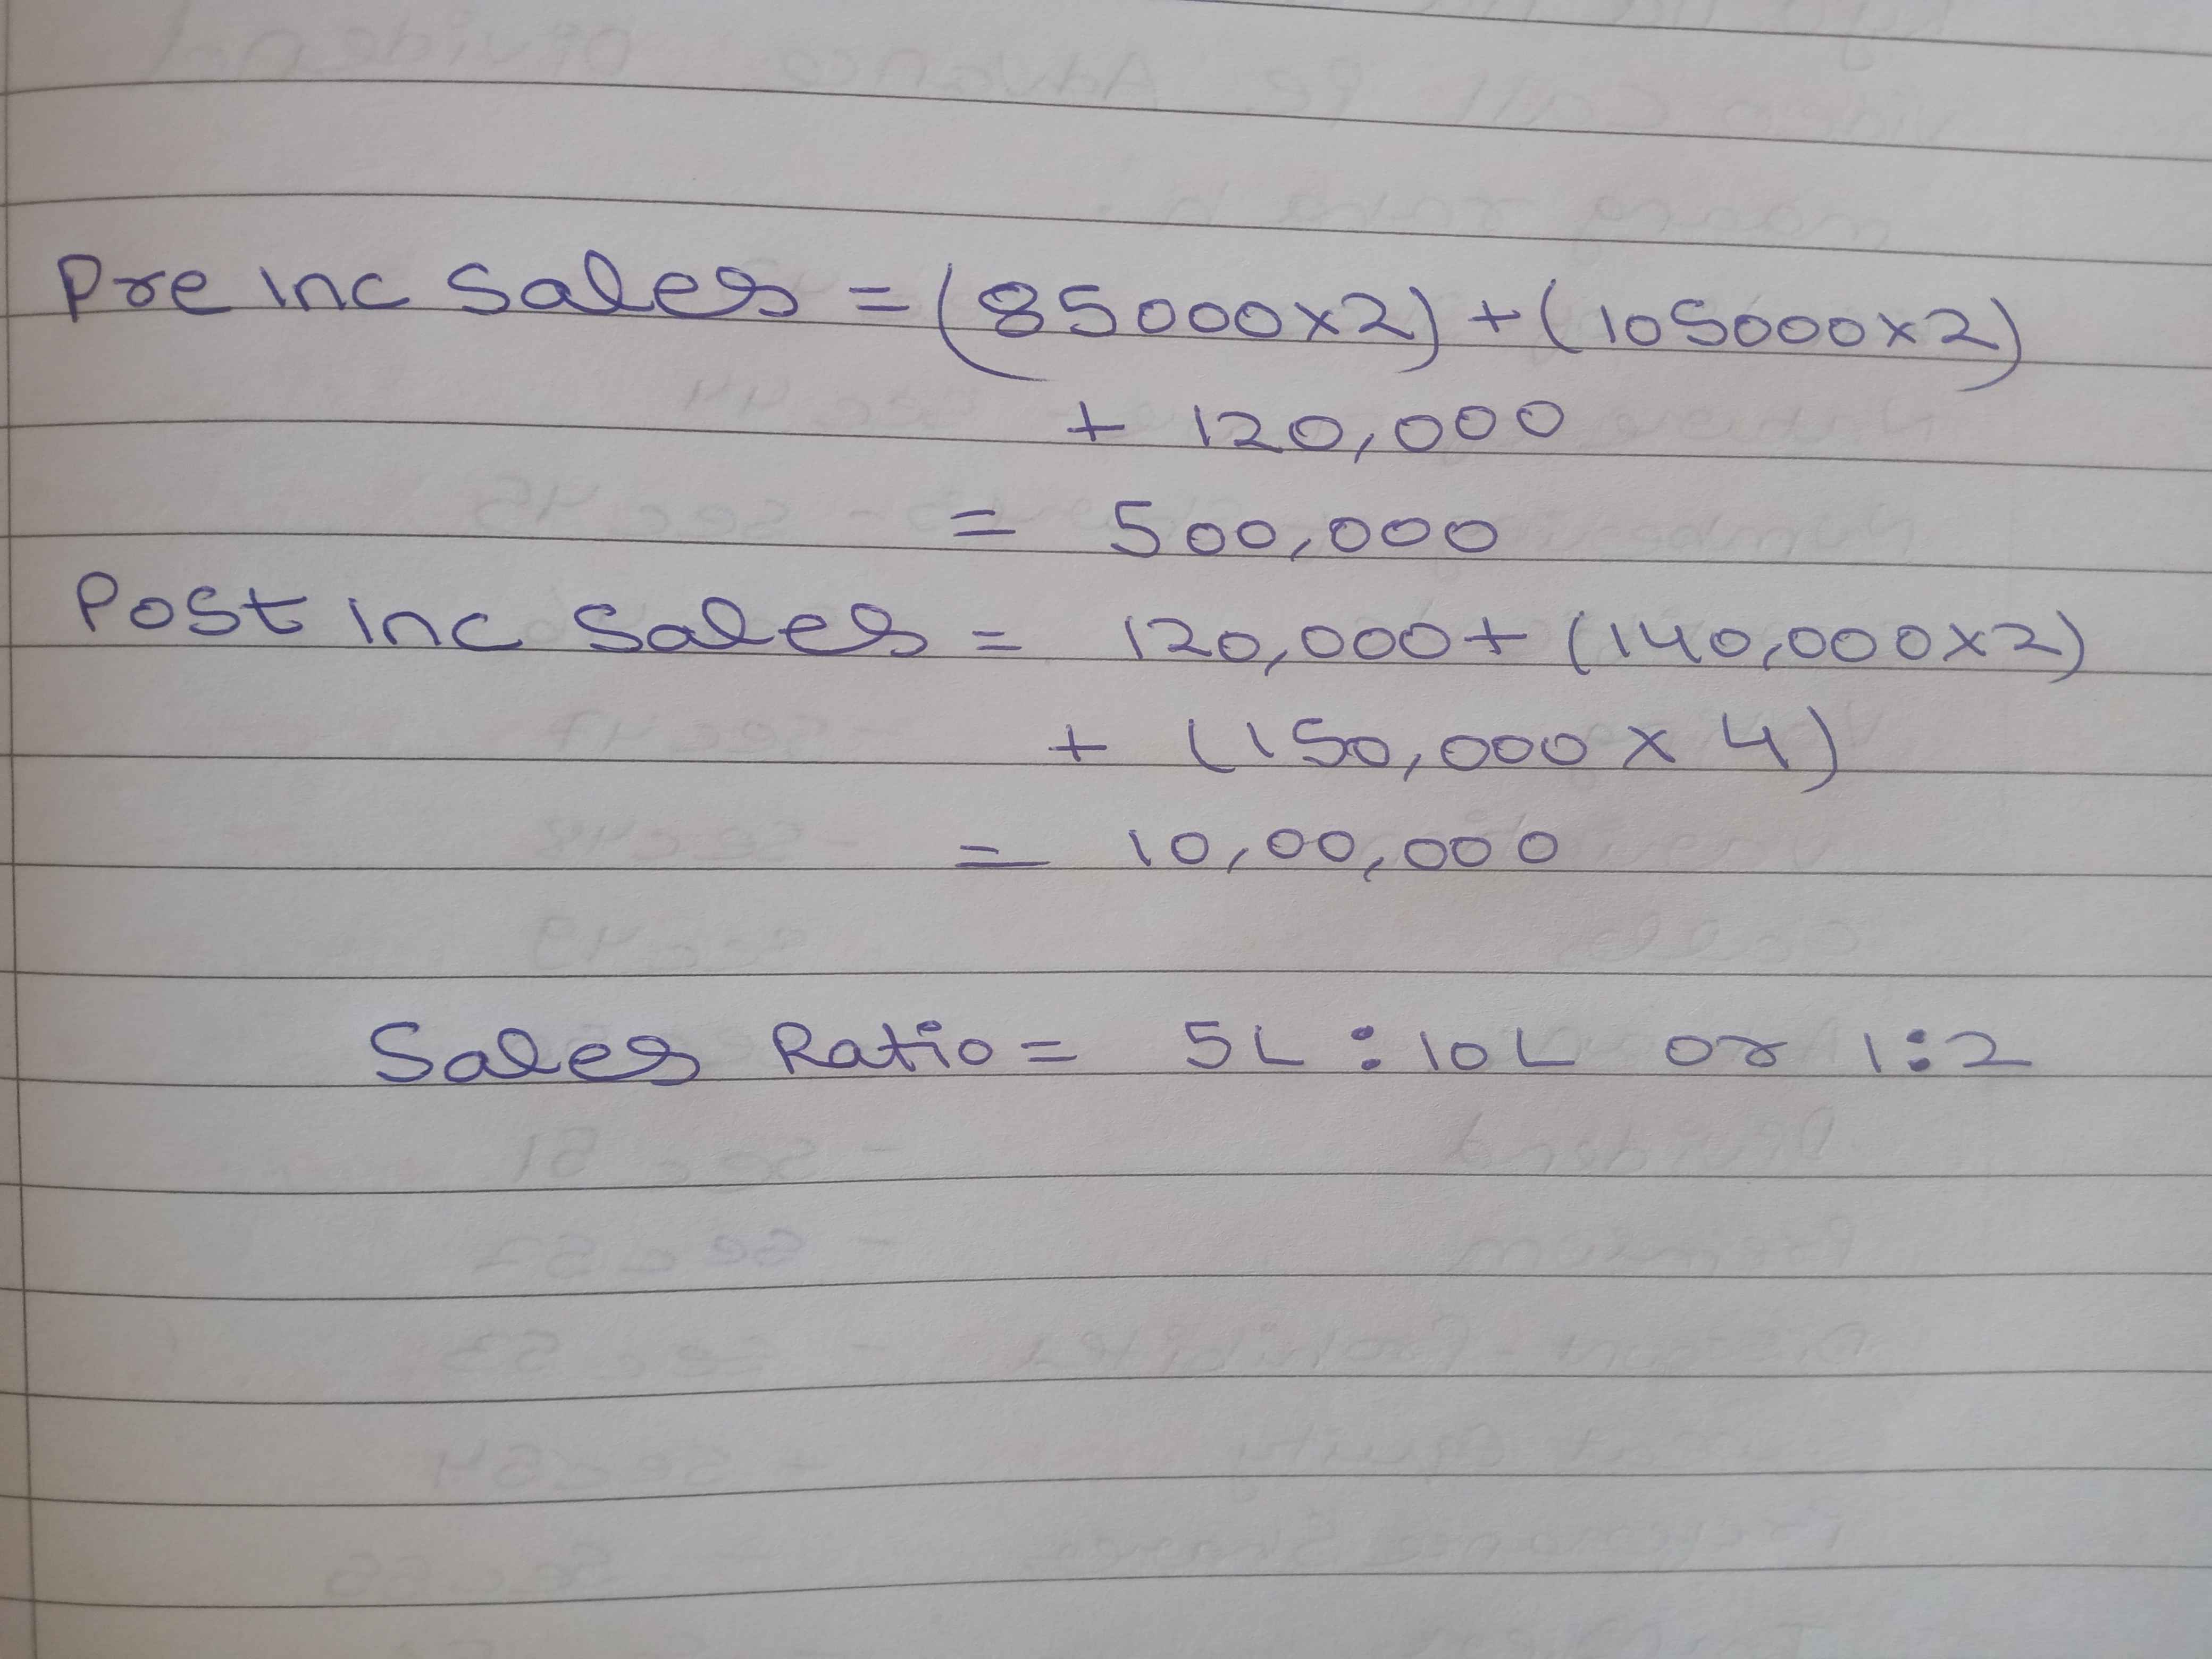 Pre inc Sales = (85000x2) + (105000x2)
+ 120,000
= 500,000
Post inc Sales = 120,000 + (140,000x2)
+ (150,000 x 4)
= 10,00,000
Sales Ratio = 5L : 10L or 1:2